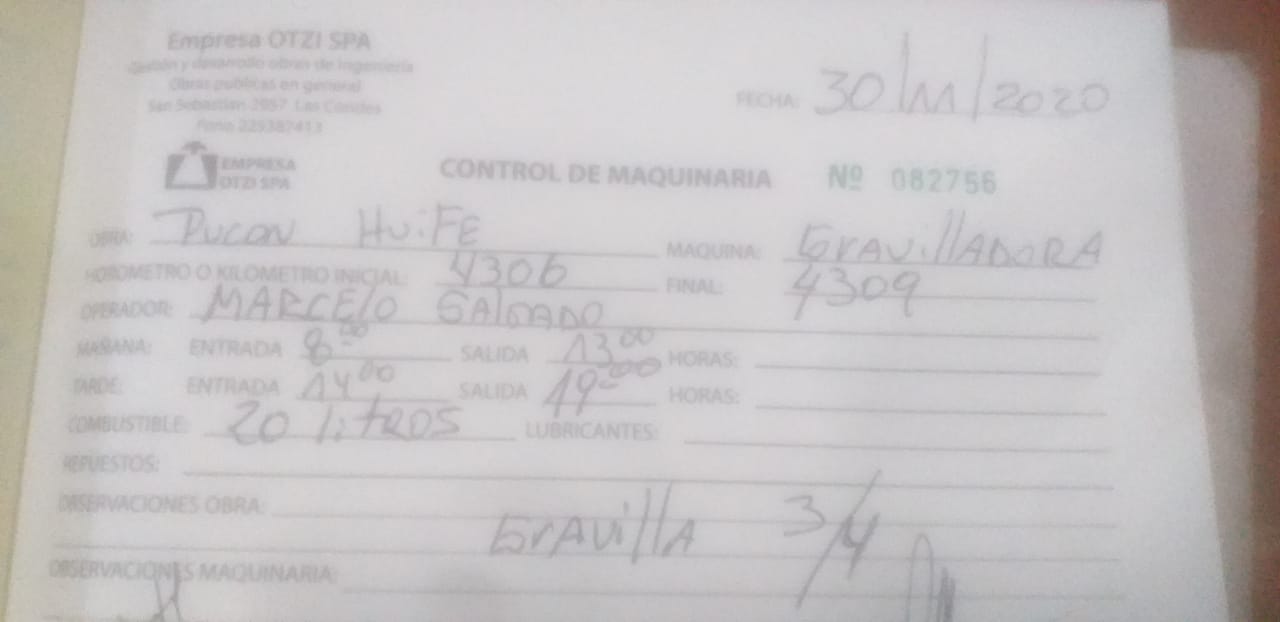 Empresa OTZI SPA
Gestión y desarrollo obras de Ingeniería
Obras publicas en general
San Sebastian 2957 Las Condes
Fono 225387413
FECHA: 30/11/2020
EMPRESA
OTZI SPA
CONTROL DE MAQUINARIA Nº 082756
OBRA: PUCON HUiFE MAQUINA: GRAVillADORA
HOROMETRO O KILOMETRO INICIAL: 4306 FINAL: 4309
OPERADOR: MARCElO SAlGADO
MAÑANA: ENTRADA 8:00 SALIDA 13:00 HORAS:
TARDE: ENTRADA 14:00 SALIDA 19:00 HORAS:
COMBUSTIBLE: 20 litROS LUBRICANTES:
REPUESTOS:
OBSERVACIONES OBRA:
GRAVillA 3/4
OBSERVACIONES MAQUINARIA: